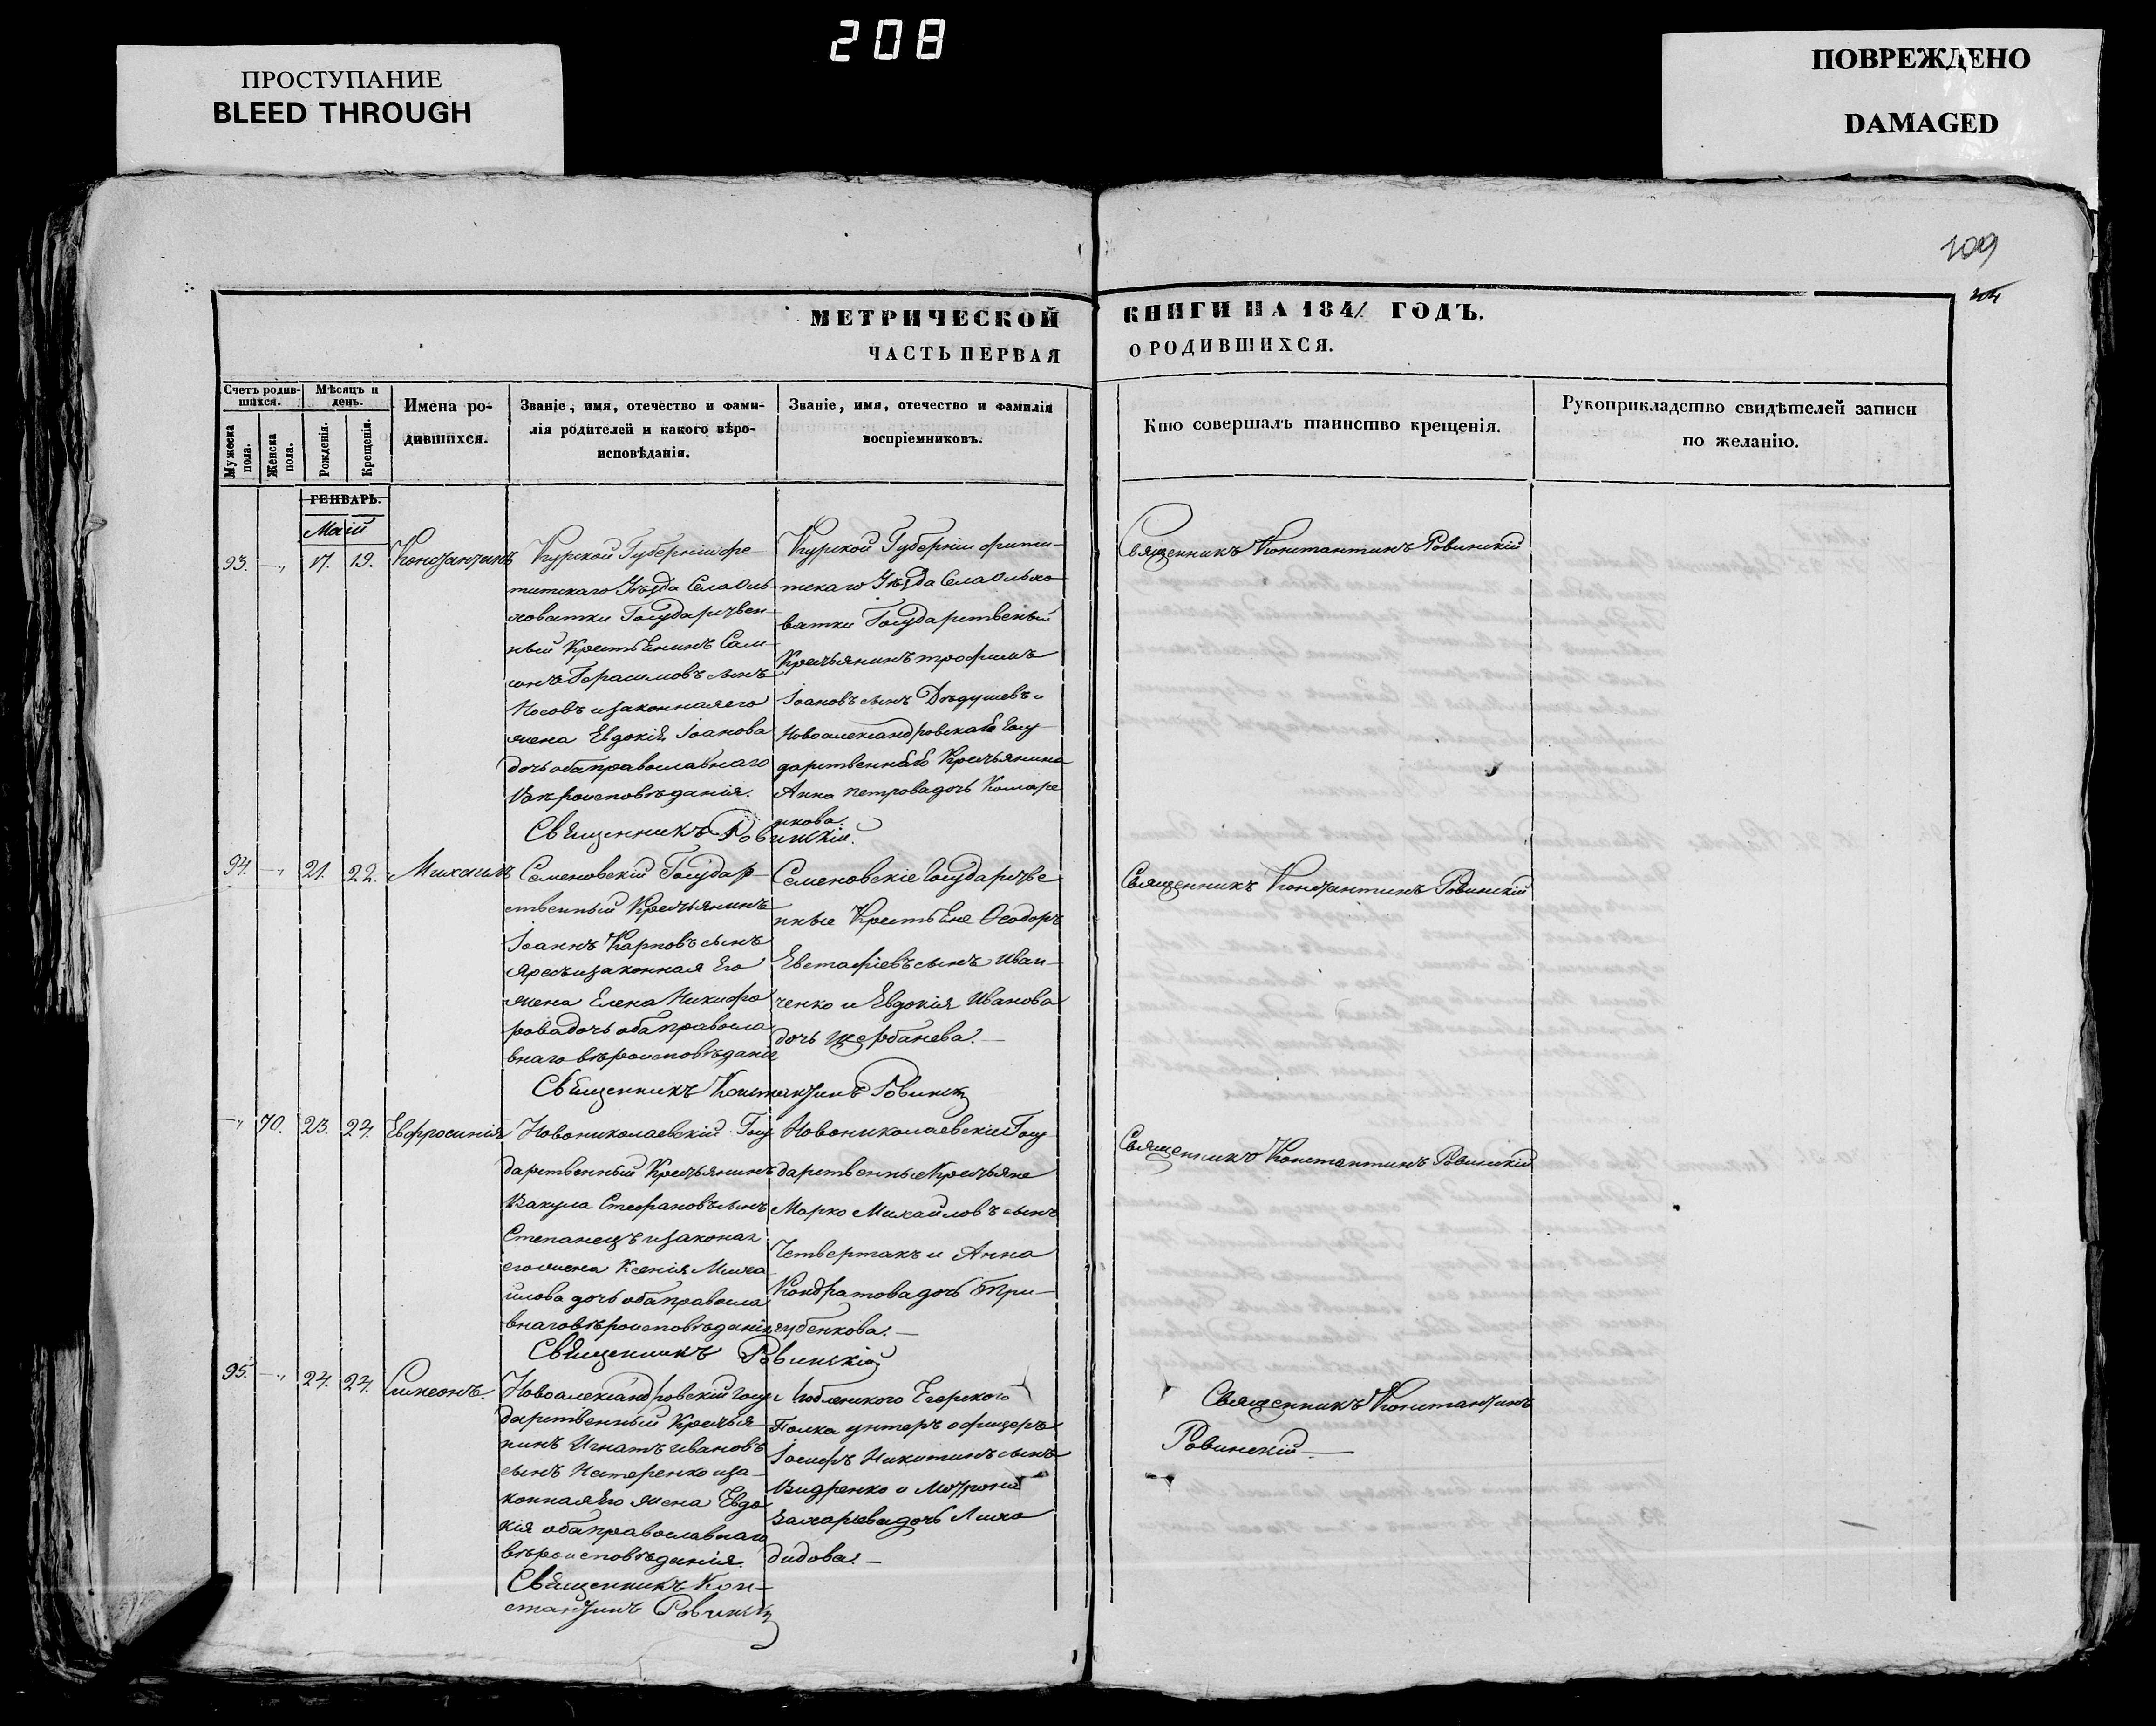 208
ПРОСТУПАНИЕ
BLEED THROUGH
ПОВРЕЖДЕНО
DAMAGED
209
МЕТРИЧЕСКОЙ
ЧАСТЬ ПЕРВАЯ
КНИГИ НА 1841 ГОДЪ.
О РОДИВШИХСЯ.
Счетъ родив-
шихся.
Мужеска
пола.
Женска
пола.
Мѣсяцъ и
день.
Рожденія.
Крещенія.
Имена ро-
дившихся.
Званіе, имя, отечество и фами-
лія родителей и какого вѣро-
исповѣданія.
Званіе, имя, отечество и фамилія
воспріемниковъ.
Кто совершалъ таинство крещенія.
Рукоприкладство свидѣтелей записи
по желанію.
ГЕНВАРЬ.
Маій
93. 17. 19. Константинъ
Курской Губерніи Фа-
титскаго Уѣзда Села Оль-
ховатки Государствен-
ный Крестьенинъ Сам-
сонъ Герасимовъ сынъ
Носовъ изаконная его
жена Евдокія Іоанова
дочь оба православнаго
Вѣроисповѣданія.
Священникъ Ровинскій.
Курской Губерніи Фати-
тскаго Уѣзда Села Ольхо-
ватки Государственый
Крестьянинъ трофимъ
Іоановъ сынъ Дѣдушевъ и
Новоалександровскаго Госу-
дарственнаго Крестьянина
Анна петрова дочь Комаре
нкова.
Священникъ Константинъ Ровинскій
94. 21. 22. Михаилъ
Семеновскій Государ-
ственный Крестьянинъ
Іоаннъ Карповъ сынъ
изаконная Его
жена Елена Никифо
рова дочь оба православ
внаго вѣроисповѣданія
Священникъ Константинъ Ровинскій
Семеновскіе Государстве
нные Крестьене Ѳеодоръ
Евстафіевъ сынъ Иван-
ченко и Евдокія Иванова
дочь Щербанева.
Священникъ Константинъ Ровинскій
70. 23. 24. Евфросинія
Новониколаевскій Госу
дарственный Крестьянинъ
Вакула Стефановъ сынъ
Степанецъ изаконая
его жена Ксенія Миха
илова дочь оба правосла
внаго вѣроисповѣданія
Священникъ Ровинскій
Новониколаевскіе Госу
дарственные Крестьяне
Марко Михайловъ сынъ
Четвертакъ и Анна
Кондратова дочь Три-
губенкова.
Священникъ Константинъ Ровинскій
95. 24. 24. Симеонъ.
Новоалександровскій госу
дарственный Крестья
нинъ Игнатъ Ивановъ
сынъ Нестеренко иза
конная Его жена Евдо
кія оба православнаго
вѣроисповѣданія.
Священникъ Кон-
стантинъ Ровинскій
Люблинского Егерского
Полка унтеръ офицеръ
Іосифъ Никитинъ сынъ
Видренко и Мотрона
Захарьева дочь Лихо
дидова.
Священникъ Константинъ
Ровинскій